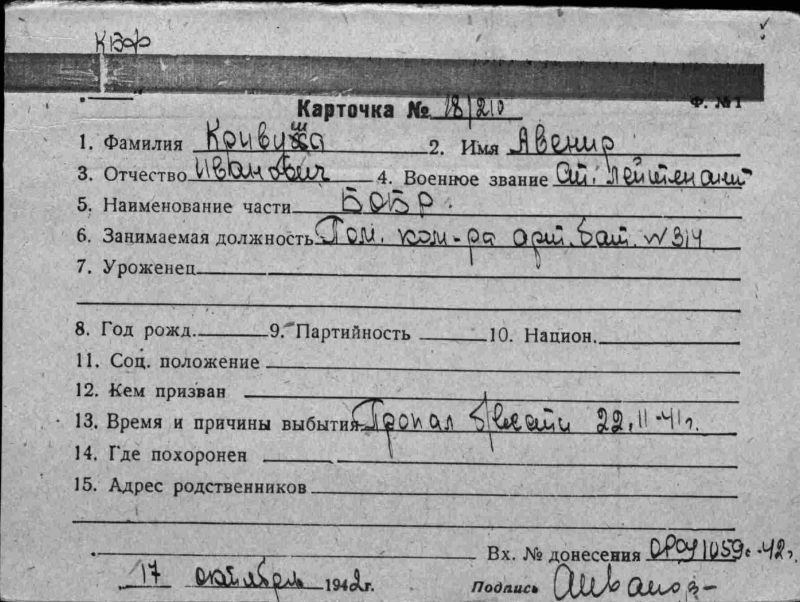 КБФ
Карточка № 18/210
Ф. №1
1. Фамилия Кривуша 2. Имя Авенир
3. Отчество Иванович 4. Военное звание Ст. лейтенант
5. Наименование части БОБР.
6. Занимаемая должность Пом. ком-ра арт. бат. N 314
7. Уроженец
8. Год рожд. 9. Партийность 10. Национ.
11. Соц. положение
12. Кем призван
13. Время и причины выбытия Пропал б/вести 22.11-41г.
14. Где похоронен
15. Адрес родственников
Вх. № донесения 1059с-42г.
17 октябрь 1942г. Подпись